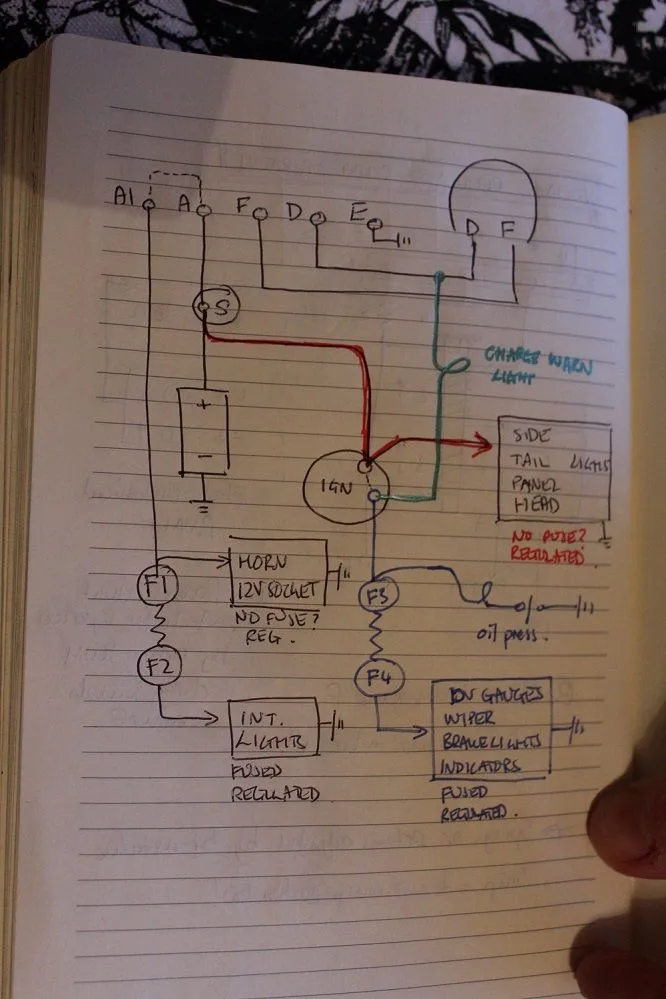 A1 A F D E
D F
S
CHARGE WARN
LIGHT
+
-
IGN
SIDE
TAIL LIGHTS
PANEL
HEAD
NO FUSE?
REGULATED.
F1
HORN
12V SOCKET
NO FUSE?
REG.
F3
oil press.
F2
F4
INT.
LIGHTS
FUSED
REGULATED
10V GAUGES
WIPER
BRAKELIGHTS
INDICATORS
FUSED
REGULATED.